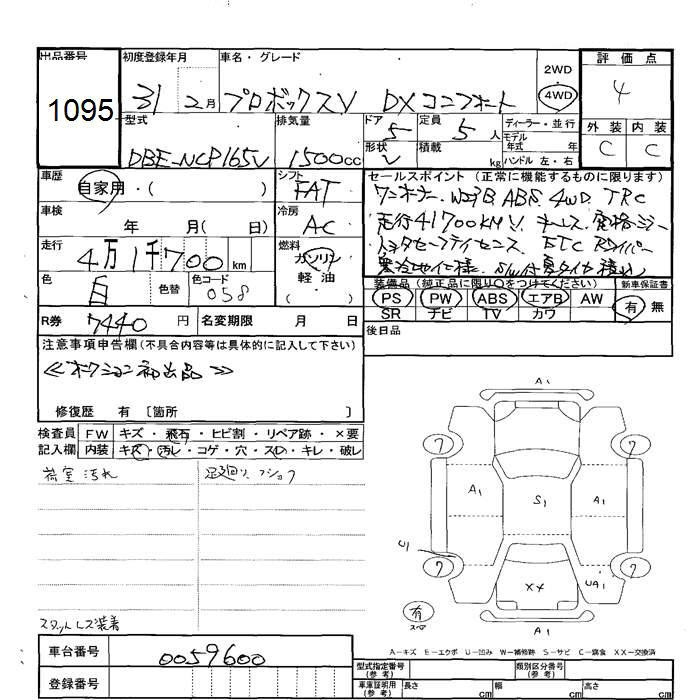 出品番号 初度登録年月 車名・グレード 評価点
1095 31 2月 プロボックスV DXコンフォート 2WD 4WD 4
型式 排気量 ドア 5 定員 5人 ディーラー・並行 外装 内装
DBE-NCP165V 1500cc 形状 V 積載 kg モデル年式 年式 ハンドル 左・右 C C
車歴 自家用・( ) シフト FAT セールスポイント (正常に機能するものに限ります)
ワンオーナー. W エアB ABS 4WD TRC
車検 年 月( 日) 冷房 AC 走行41700KM キーレス. 電格ミラー
走行 4万1千700km 燃料 ガソリン・軽油 トヨタセーフティセンス ETC
寒冷地仕様. S/W付夏タイヤ積込
色 白 色替 色コード 058 装備品 (純正品に限り○をつけてください) 新車保証書
PS PW ABS エアB AW 有 無
SR ナビ TV カワ
R券 7440円 名変期限 月 日 後日品
注意事項申告欄 (不具合内容等は具体的に記入して下さい)
≪オークション初出品≫
修復歴 有 〔箇所 〕
検査員 FW キズ・飛石・ヒビ割・リペア跡・×要
記入欄 内装 キズ・汚レ・コゲ・穴・スD・キレ・破レ
荷室汚れ 足廻り.
A1
A1 S1 A1
U1
XX UA1
有 スペア
A1
スタットレス装着
A-キズ E-エクボ U-凹み W-補修跡 S-サビ C-腐食 XX-交換済
車台番号 0059600 型式指定番号 (参考) 類別区分番号 (参考)
登録番号 車庫証明用 (参考) 長さ cm 幅 cm 高さ cm